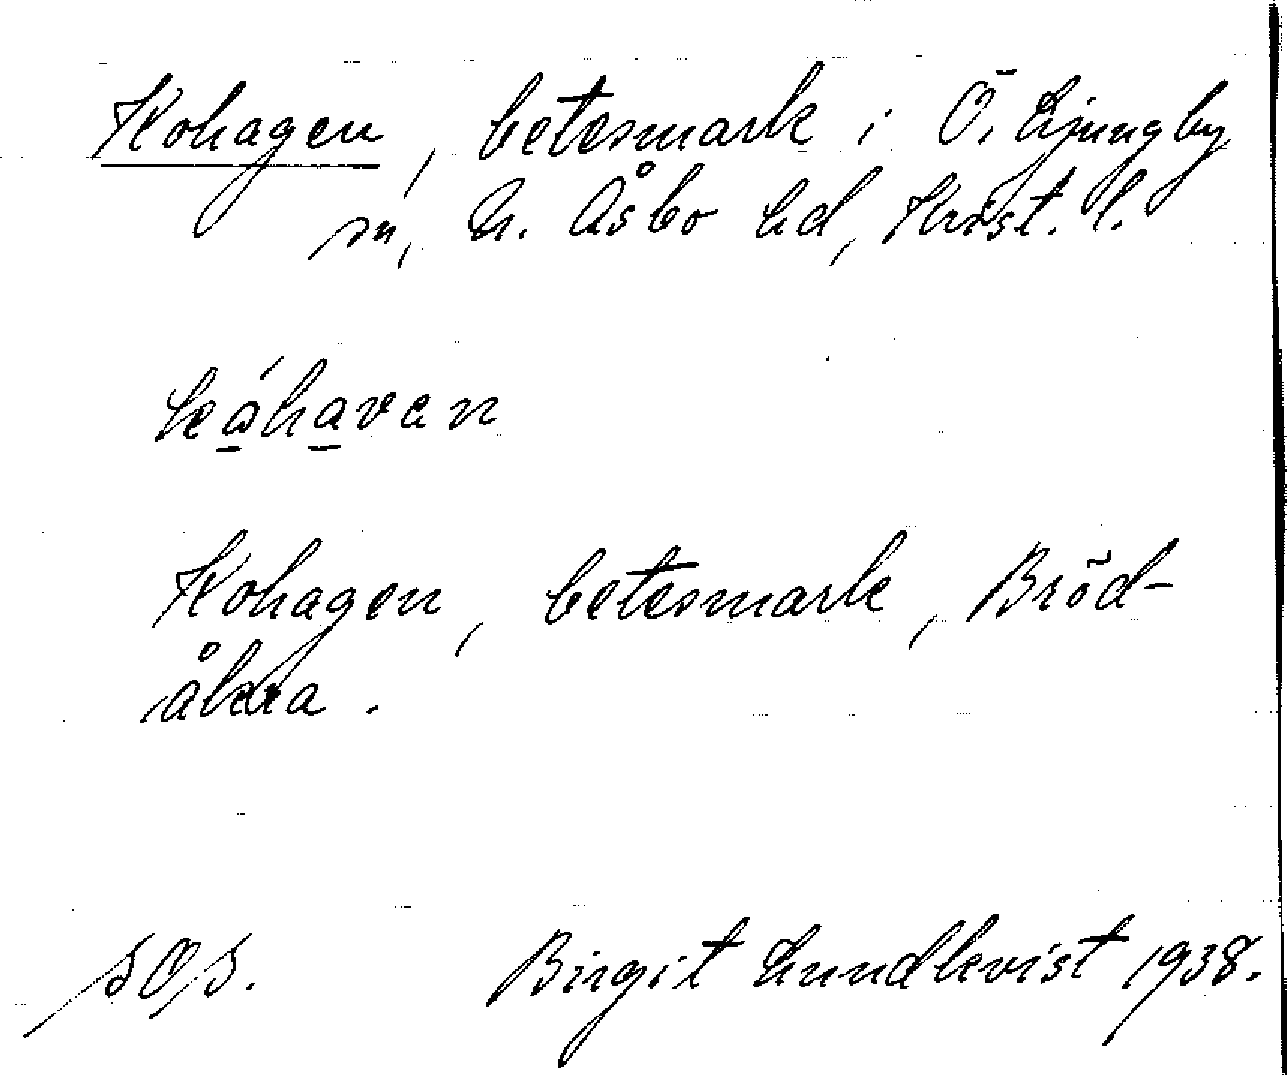 Kohagen, betesmark i Ö. Ljungby
sn, N. Åsbo hd, Krist. l.
kóhaven
Kohagen, betesmark, Bröd-
åkra.
SOS. Birgit Lundkvist 1938.